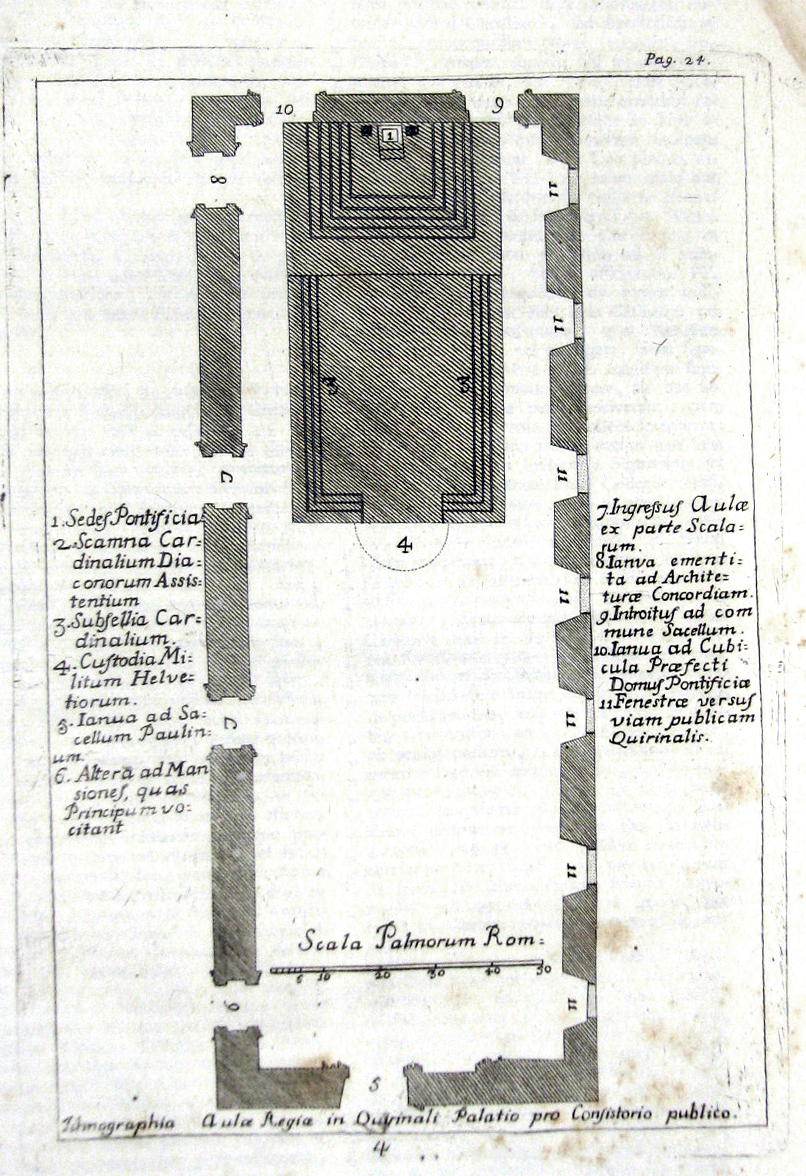 Pag. 24.
10
9
1
8
11
11
3
3
7
11
1. Sedes Pontificia
2. Scamna Car=
dinalium Dia=
conorum Assis=
tentium
3. Subsellia Car=
dinalium.
4. Custodia Mi=
litum Helve=
tiorum.
5. Ianua ad Sa=
cellum Paulin
um.
6. Altera ad Man
siones, quas
Principum vo=
citant
4
7. Ingressus Aulæ
ex parte Scala=
rum.
8. Ianva ementi=
ta ad Archite=
turæ Concordiam.
9. Introitus ad com
mune Sacellum.
10. Ianua ad Cubi=
cula Præfecti
Domus Pontificiæ
11 Fenestræ versus
viam publicam
Quirinalis.
11
7
11
11
Scala Palmorum Rom:
5 10 20 30 40 50
6
11
5
Ichnographia Aulæ Regiæ in Quirinali Palatio pro Consistorio publico.
4